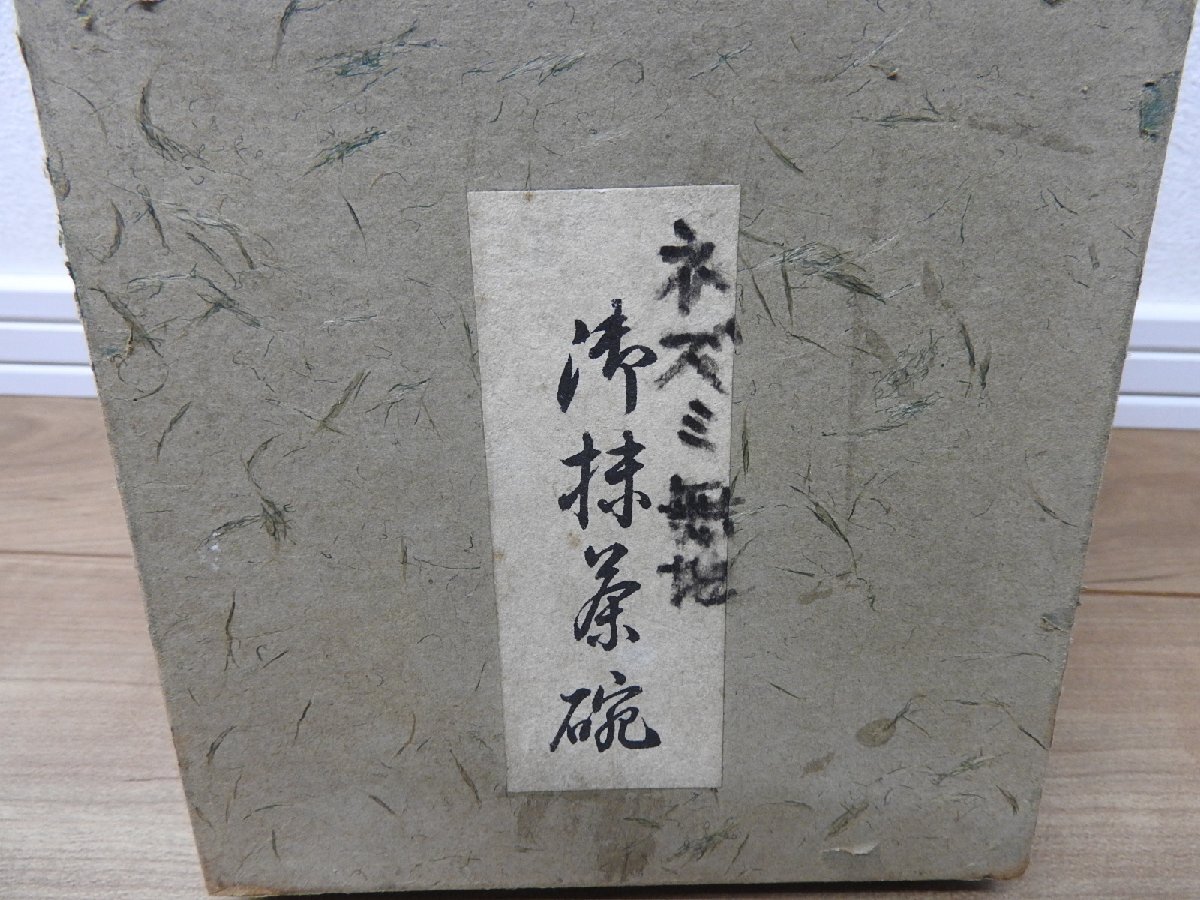 ネズミ無地
御抹茶碗